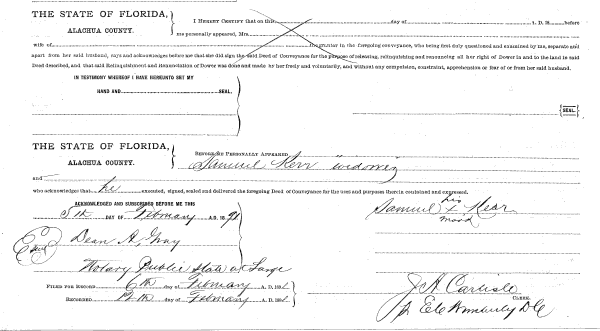 THE STATE OF FLORIDA,
ALACHUA COUNTY.
I HEREBY CERTIFY that on this day of A. D. 18 before
me personally appeared, Mrs.
wife of the grantor in the foregoing conveyance, who being first duly questioned and examined by me, separate and
apart from her said husband, says and acknowledges before me that she did sign the said Deed of Conveyance for the purpose of releasing, relinquishing and renouncing all her right of Dower in and to the land in said
Deed described, and that said Relinquishment and Renunciation of Dower was done and made by her freely and voluntarily, and without any compulsion, constraint, apprehension or fear of or from her said husband.
IN TESTIMONY WHEREOF I HAVE HEREUNTO SET MY
HAND AND SEAL.
SEAL.
THE STATE OF FLORIDA,
ALACHUA COUNTY.
BEFORE ME PERSONALLY APPEARED
Samuel Kerr widower
and
who acknowledges that he executed, signed, sealed and delivered the foregoing Deed of Conveyance for the uses and purposes therein contained and expressed.
ACKNOWLEDGED AND SUBSCRIBED BEFORE ME THIS
5th DAY OF February A.D. 1891
his
Samuel x Kear
mark
Dean A. Gray
Notary Public State at Large
FILED FOR RECORD 6th day of February A. D. 1891
RECORDED 12th day of February A. D. 1891
J. A. Carlisle
CLERK.
Kimberly D C